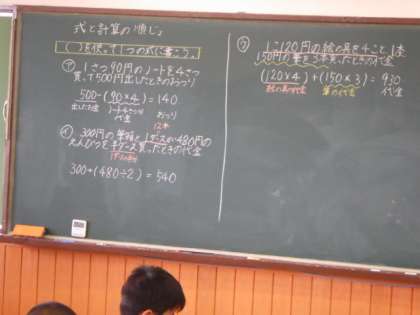 式と計算の順じょ
( )を使って1つの式に書こう。
㋐ 1さつ90円のノートを4さつ
買って500円出したときのおつり
500-(90×4)=140
出したお金 ノート4さつの代金 おつり
12本
㋑ 300円の筆箱と1ダースが480円の
えんぴつを半ダース買ったときの代金
300+(480÷2)=540
㋒ 1こ120円の絵の具を4こと、1本
150円の筆を3本買ったときの代金
(120×4)+(150×3)=930
絵の具の代金 筆の代金 代金